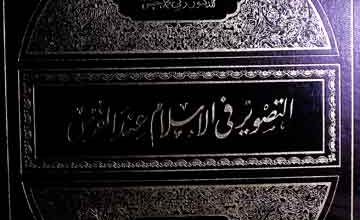 التصوير في الإسلام عند الفرس